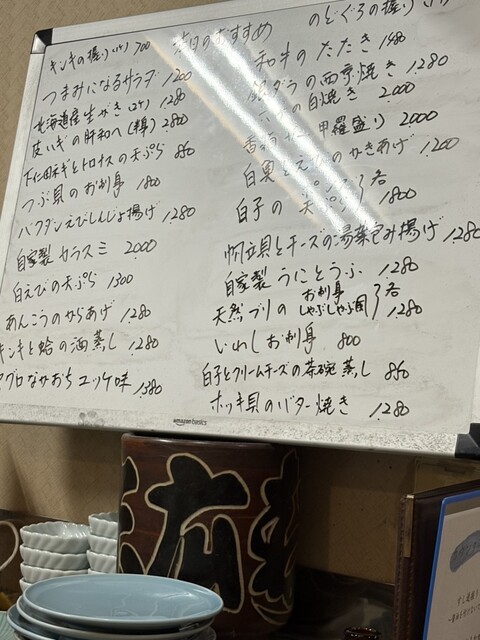 本日のおすすめ
キンキの握り(1ヶ) 700
つまみになるサラダ 1200
北海道産生がき(2ヶ) 1,280
皮はぎの肝和へ(1尾) 2,800
下仁田ネギとトロナスの天ぷら 850
つぶ貝のお刺身 1,800
バクダンえびしんじょ揚げ 1,280
自家製カラスミ 2,000
白えびの天ぷら 1300
あんこうのからあげ 1,280
キンキと蛤の酒蒸し 1,280
マグロなかおちユッケ味 1,380
のどぐろの握り(1ヶ)
和牛のたたき 1480
銀ダラの西京焼き 1,280
の白焼き 2,000
香箱 甲羅盛り 2000
白魚とえびのかきあげ 1200
白子の ポン酢 天ぷら 各 1,800
帆立貝とチーズの湯葉包み揚げ 1,280
自家製うにとうふ 1,280
天然ブリの お刺身 しゃぶしゃぶ風 各 1,280
いわしお刺身 800
白子とクリームチーズの茶碗蒸し 850
ホッキ貝のバター焼き 1,280
amazonbasics